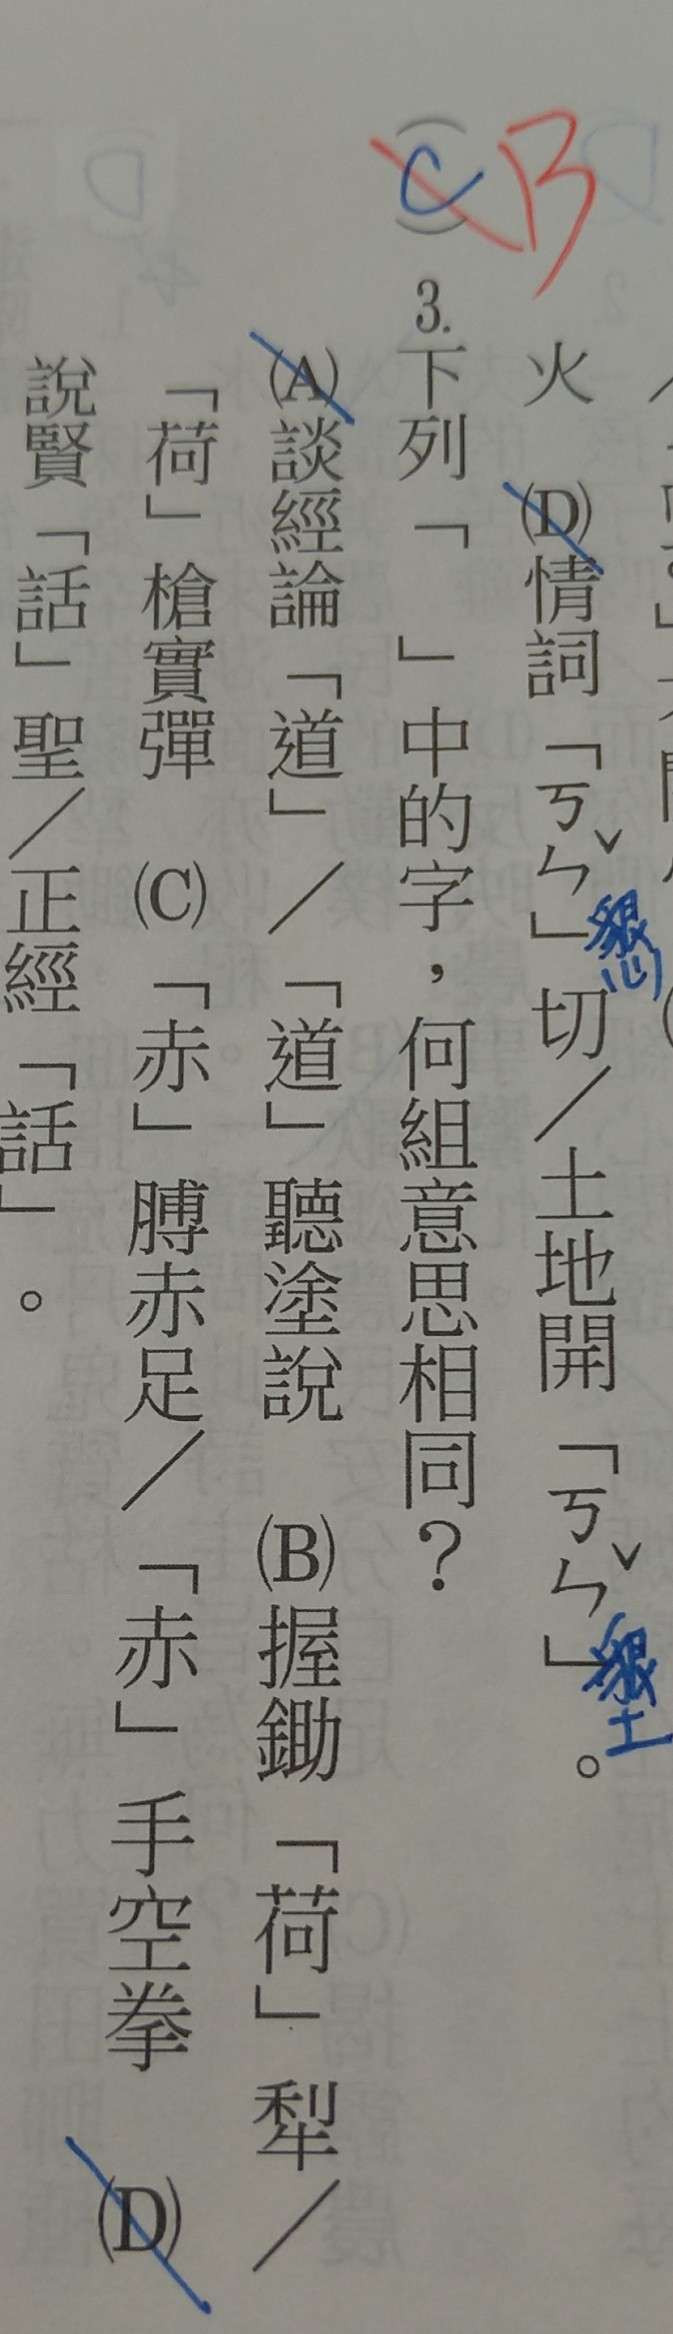 火　(D)情詞「ㄎㄣˇ」懇切／土地開「ㄎㄣˇ」墾。
(C) B 3.下列「　」中的字，何組意思相同？
(A)談經論「道」／「道」聽塗說　(B)握鋤「荷」犁／
「荷」槍實彈　(C)「赤」膊赤足／「赤」手空拳　(D)
說賢「話」聖／正經「話」。